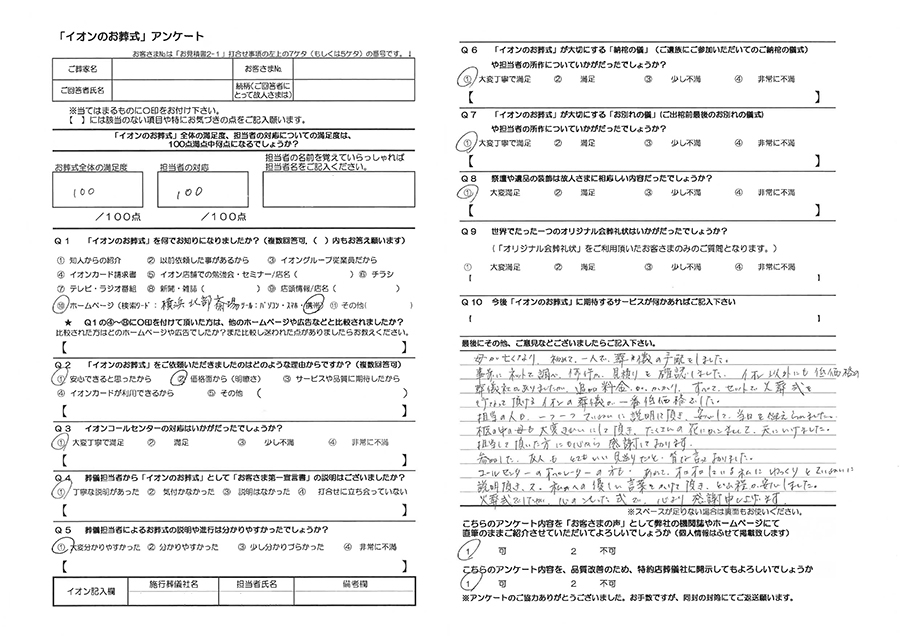 「イオンのお葬式」アンケート
お客さまNoは「お見積書2-1」打合せ事項の左上の7ケタ(もしくは5ケタ)の番号です。↓
ご葬家名 お客さまNo.
ご回答者氏名 続柄(ご回答者にとって故人さまは)
※当てはまるものに○印をお付け下さい。
【 】には該当のない項目や特にお気づきの点をご記入願います。
「イオンのお葬式」全体の満足度、担当者の対応についての満足度は、
100点満点中何点になるでしょうか?
お葬式全体の満足度 担当者の対応 担当者の名前を覚えていらっしゃれば
担当者名をご記入ください。
100 100
/100点 /100点
Q1 「イオンのお葬式」を何でお知りになりましたか?(複数回答可、( )内もお答え願います)
① 知人からの紹介 ② 以前依頼した事があるから ③ イオングループ従業員だから
④ イオンカード請求書 ⑤ イオン店舗での勉強会・セミナー/店名( ) ⑥ チラシ
⑦ テレビ・ラジオ番組 ⑧ 新聞・雑誌( ) ⑨ 店頭情報/店名( )
⑩ ホームページ(検索ワード: 横浜北部斎場 ツール:パソコン・スマホ・携帯) ⑪ その他( )
★ Q1の④~⑩に○印を付けて頂いた方は、他のホームページや広告などと比較されましたか?
比較された方はどのホームページや広告でしたか?また比較し迷われた点がありましたらお教えください。
【 】
Q2 「イオンのお葬式」をご依頼いただきましたのはどのような理由からですか?(複数回答可)
① 安心できると思ったから ② 価格面から(明瞭さ) ③ サービスや品質に期待したから
④ イオンカードが利用できるから ⑤ その他 ( )
【 】
Q3 イオンコールセンターの対応はいかがだったでしょうか?
① 大変丁寧で満足 ② 満足 ③ 少し不満 ④ 非常に不満
【 】
Q4 葬儀担当者から「イオンのお葬式」として「お客さま第一宣言書」の説明はございましたか?
① 丁寧な説明があった ② 気付かなかった ③ 説明はなかった ④ 打合せに立ち会っていない
【 】
Q5 葬儀担当者によるお葬式の説明や進行は分かりやすかったでしょうか?
① 大変分かりやすかった ② 分かりやすかった ③ 少し分かりづらかった ④ 非常に不満
【 】
イオン記入欄 施行葬儀社名 担当者氏名 備考欄
Q6 「イオンのお葬式」が大切にする「納棺の儀」(ご遺族にご参加いただいてのご納棺の儀式)
や担当者の所作についていかがだったでしょうか?
① 大変丁寧で満足 ② 満足 ③ 少し不満 ④ 非常に不満
【 】
Q7 「イオンのお葬式」が大切にする「お別れの儀」(ご出棺前最後のお別れの儀式)
や担当者の所作についていかがだったでしょうか?
① 大変丁寧で満足 ② 満足 ③ 少し不満 ④ 非常に不満
【 】
Q8 祭壇や遺品の装飾は故人さまに相応しい内容だったでしょうか?
① 大変満足 ② 満足 ③ 少し不満 ④ 非常に不満
【 】
Q9 世界でたった一つのオリジナル会葬礼状はいかがだったでしょうか?
(「オリジナル会葬礼状」をご利用頂いたお客さまのみのご質問となります。)
① 大変満足 ② 満足 ③ 少し不満 ④ 非常に不満
【 】
Q10 今後「イオンのお葬式」に期待するサービスが何かあればご記入下さい
【 】
最後にその他、ご意見などございましたらご記入下さい。
母が亡くなり、初めて、一人で、葬儀の手配をしました。
事前にネットで調べ、何件か、見積りを確認しました。イオン以外にも低価格の
葬儀社はありましたが、追加料金がかかり、すべて、セットで火葬式を
行なって頂けるイオンの葬儀が一番低価格でした。
担当の人も、一つ一つていねいに説明して頂き、安心して、当日を迎えられました。
棺の中の母も大変きれいにして頂き、たくさんの花にかこまれて、天にいけました。
担当して頂いた方にも心から感謝しております。
参加した、友人もとてもいい見送りだと、皆言っておりました。
コールセンターのオペレーターの方も、あわて、
説明頂き、
火葬式でしたが、心のこもった式で、心より感謝申し上げます。
※スペースが足りない場合は裏面もお使いください。
こちらのアンケート内容を「お客さまの声」として弊社の機関誌やホームページにて
直筆のままご紹介させていただいてよろしいでしょうか(個人情報はふせて掲載致します)
1 可 2 不可
こちらのアンケート内容を、品質改善のため、特約店葬儀社に開示してもよろしいでしょうか
1 可 2 不可
※アンケートのご協力ありがとうございました。お手数ですが、同封の封筒にてご返送願います。